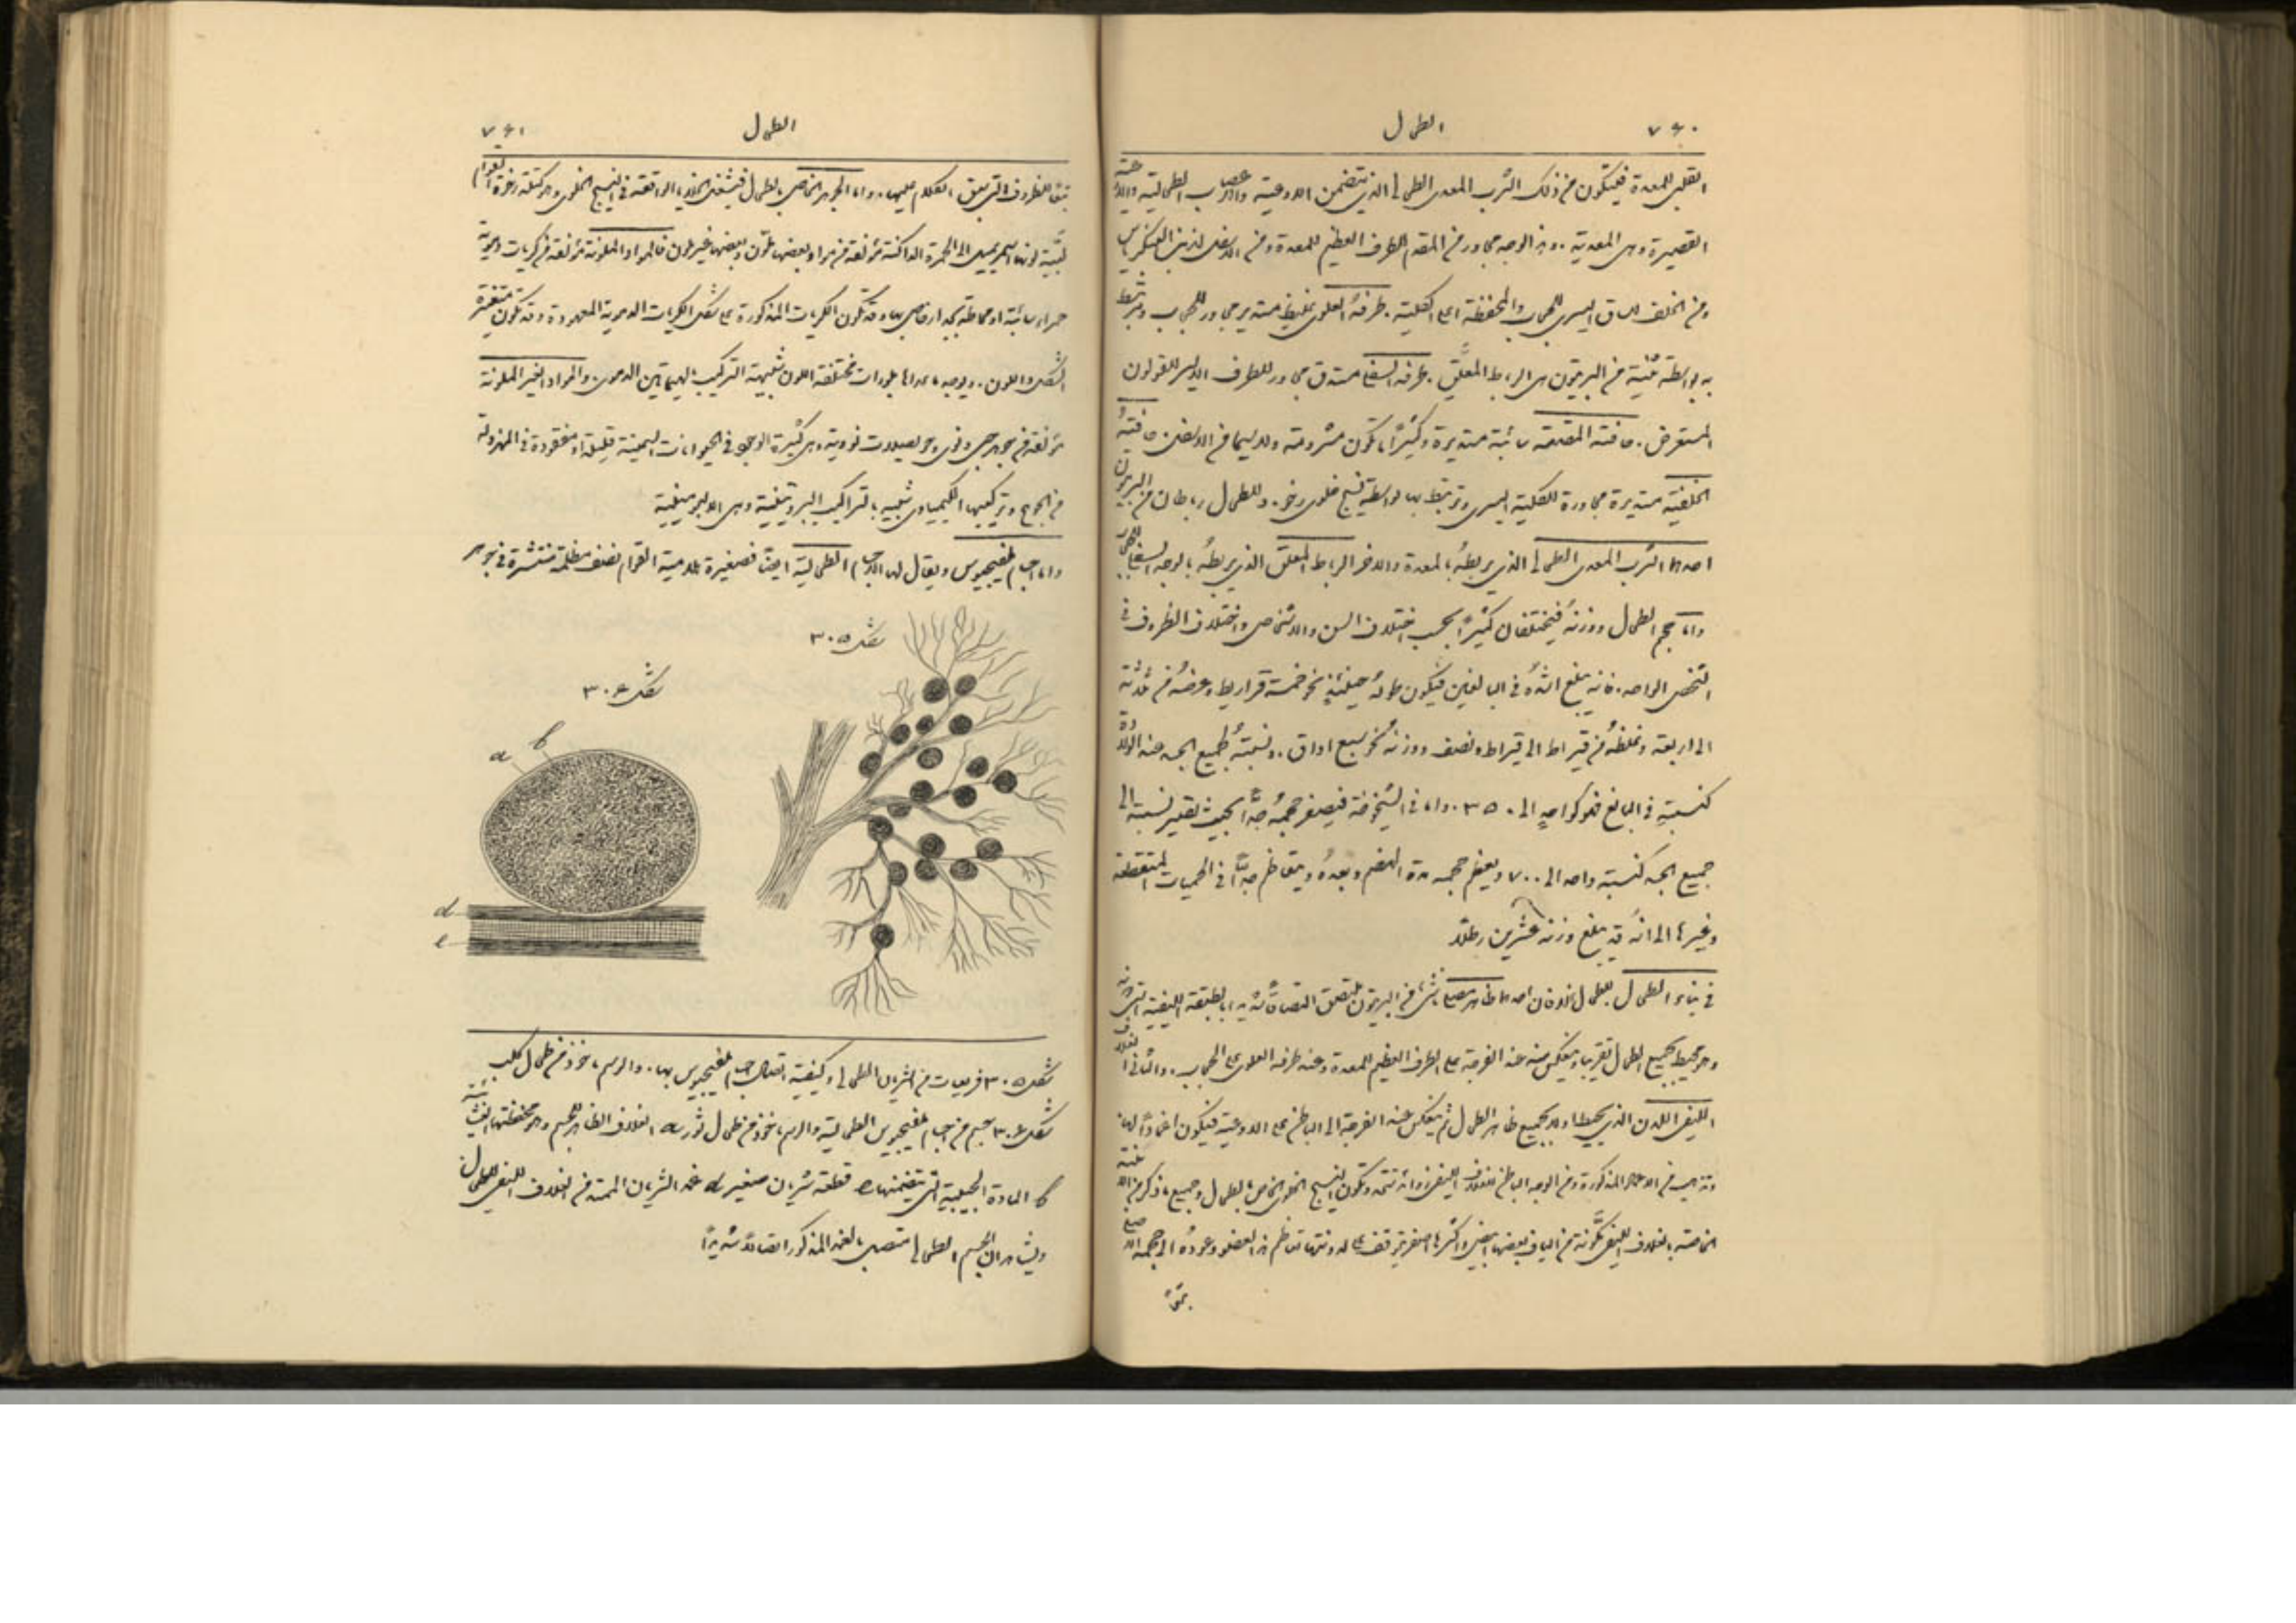 ٧٤٠ الطحال
القلبي للمعدة فيتكون من ذلك الثرب المعدي الطحالي الذي يتضمن الاوعية والاعصاب الطحالية والاوعية
القصيرة وهي المعدية. وهذا الوجه مجاور من المقدم للطرف العظيم للمعدة ومن الاسفل لذنب البنكرياس
ومن الخلف للساق اليسرى للحجاب والمحفظة اعلى الكلية. طرفهُ العلوي غليظ مستدير مجاور للحجاب ومرتبط
به بواسطة ثنية من البريتون هي الرباط المعلّق. طرفه السفلي مستدق مجاور للطرف الايسر للقولون
المستعرض. حافتهُ المقدمة سائبة مستديرة وكثيرًا ما تكون مشرومة ولاسيما في الاسفل. حافتهُ
الخلفية مستديرة مجاورة للكلية اليسرى وترتبط بها بواسطة نسيج خلوي رخو. وللطحال رباطان من البريتون
احدهما الثرب المعدي الطحالي الذي يربطهُ بالمعدة والاخر الرباط المعلق الذي يربطهُ بالوجه السفلي للحجاب
واما حجم الطحال ووزنهُ فيختلفان كثيرًا بحسب اختلاف السن والاشخاص واختلاف الظروف في
الشخص الواحد. فانه يبلغ اشدّهُ في البالغين فيكون طولهُ حينئذٍ نحو خمسة قراريط وعرضهُ من ثلاثة
الى اربعة وغلظهُ من قيراط الى قيراط ونصف ووزنهُ نحو سبع اواق. ونسبتهُ لجميع الجسد عند الولادة
كنسبتهِ في البالغ فهو كواحدٍ الى ٣٥٠. واما في الشيخوخة فيصغر حجمهُ جدًّا بحيث تصير نسبته الى
جميع الجسد كنسبة واحد الى ٧٠٠ ويعظم حجمه مدة الهضم وبعدهُ ويتعاظم جدًّا في الحميات المتقطعة
وغيرها الى انهُ قد يبلغ وزنه عشرين رطلًا
في بناء الطحال. للطحال غلافان احدهما ظاهر مصلي ناشئ من البريتون ملتصق التصاقًا شديدًا بالطبقة الليفية التي دونه
وهو محيط بجميع الطحال تقريبا وينعكس منه عند الفرجة على الطرف العظيم للمعدة وعند طرفه العلوي على الحجاب. والثاني الغلاف
الليفي اللدن الذي يحيط اولا بجميع ظاهر الطحال ثم ينعكس عند الفرجة الى الباطن على الاوعية فيكون اغمادًا لها.
الاغماد المذكورة ومن الوجه الباطن للغلاف الليفي زوائد تتحد وتكون النسيج الخلوي الخاص بالطحال وجميع ما ذكر من
الخاصة بالغلاف الليفي مكوّنة من الياف بعضها ابيض واكثرها اصفر تتوقف على لدونتها تعاظم هذا العضو وعودهُ الى حجمه الاصلي
تبعًا
٧٤١ الطحال
تبعًا للظروف التي سبق الكلام عليها. واما الجوهر الخاص بالطحال فيشغل الخلايا الواقعة في النسيج الخلوي وهو كتلة رخوة القوام
لبّيّة لونها اسمر يميل الى الحمرة الداكنة مؤلفة من مواد بعضها ملوّن وبعضها غير ملون فالمواد الملونة مؤلفة من كريات دموية
حمراء سائبة او محاطة بجدار خاص بها وقد تكون الكريات المذكورة على شكل الكريات الدموية المعهودة وقد تكون متغيرة
الشكل واللون. ويوجد ما عداها بلورات مختلفة اللون شبيهة التركيب بالهيماتين الدموي. والمواد الغير الملونة
مؤلفة من جوهر حبيبي ونوى وحويصلات نووية وهي كثيرة الوجود في الحيوانات السمينة قليلة او مفقودة في المهزولة
من الجوع وتركيبها الكيمياوي شبيه بالتراكيب البروتينية وهي الالبومينية
واما اجسام ملفيجيوس ويقال لها الاجسام الطحالية ايضًا فصغيرة هلامية القوام نصف مظلمة منتشرة في جوهر
شكل ٣٠٥
شكل ٣٠٤
a b
d
e
شكل ٣٠٥ فريعات من الشريان الطحالي وكيفية اتصال اجسام ملفيجيوس بها. والرسم ماخوذ من طحال كلب
شكل ٣٠٤ جسم من اجسام ملفيجيوس الطحالية والرسم ماخوذ من طحال ثور a الغلاف الظاهر للجسم وهو محفظتها الغشائية
b المادة الحبيبية التي تتضمنها e قطعة شريان صغير d غمد الشريان الممتد من الغلاف الليفي للطحال
ويشاهد ان الجسم الطحالي متصل بالغمد المذكور اتصالًا شديدًا